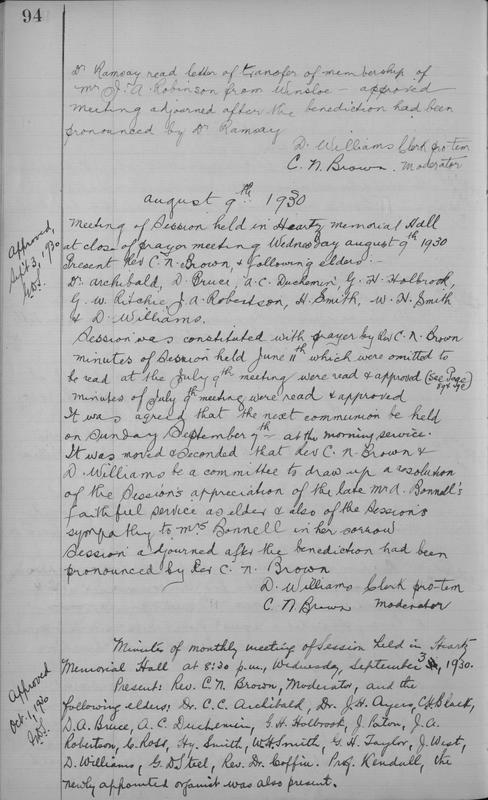 94
Dr Ramsay read letter of transfer of membership of
Mr J. A. Robinson from Winsloe - approved
Meeting adjourned after the benediction had been
pronounced by Dr Ramsay
D. Williams Clerk pro-tem
C. N. Brown. Moderator
August 9th 1930
Approved,
Sept 3, 1930
Meeting of Session held in Heartz Memorial Hall
at close of prayer meeting Wednesday August 9th 1930
Present Rev C. N. Brown, & following elders:-
Dr. Archibald, D. Bruce, A. C. Duchemin, G. H. Holbrook,
G. W. Ritchie, J. A. Robertson, H. Smith, W. H. Smith
& D. Williams.
Session was constituted with prayer by Rev C. N. Brown
Minutes of Session held June 11th which were omitted to
be read at the July 9th meeting were read & approved (see Page
Minutes of July 9th meeting were read & approved
It was agreed that the next communion be held
on Sunday September 7th at the morning service.
It was moved & seconded that Rev C. N. Brown &
D. Williams be a committee to draw up a resolution
of the Session's appreciation of the late Mr A. Bonnell's
faithful service as elder & also of the Session's
sympathy to Mrs Bonnell in her sorrow
Session adjourned after the benediction had been
pronounced by Rev C. N. Brown
D. Williams Clerk pro-tem
C. N. Brown Moderator
Approved
Oct. 1, 1930
Minutes of monthly meeting of Session held in Heartz
Memorial Hall at 8:30 p.m., Wednesday, September 3, 1930.
Present: Rev. C. N. Brown, Moderator, and the
following elders; Dr. C. C. Archibald, Dr. J. H. Ayers, C. H. Black,
D. A. Bruce, A. C. Duchemin, G. H. Holbrook, J. Paton, J. A.
Robertson, C. Ross, Hy. Smith, W. H. Smith, G. H. Taylor, J. West,
D. Williams, G. D. Steel, Rev. Dr. Coffin. Prof. Kendall, the
newly appointed organist was also present.